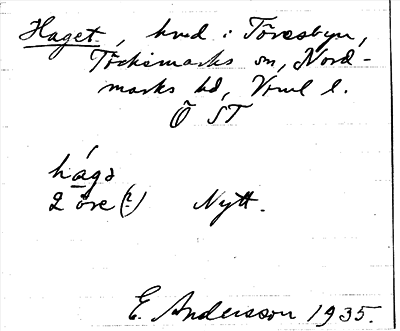 Haget, hmd i Töresbyn,
Töcksmarks sn, Nord-
marks hd, Vrml l.
Ö ST
hága
2 öre (?) Nytt.
E. Andersson 1935.